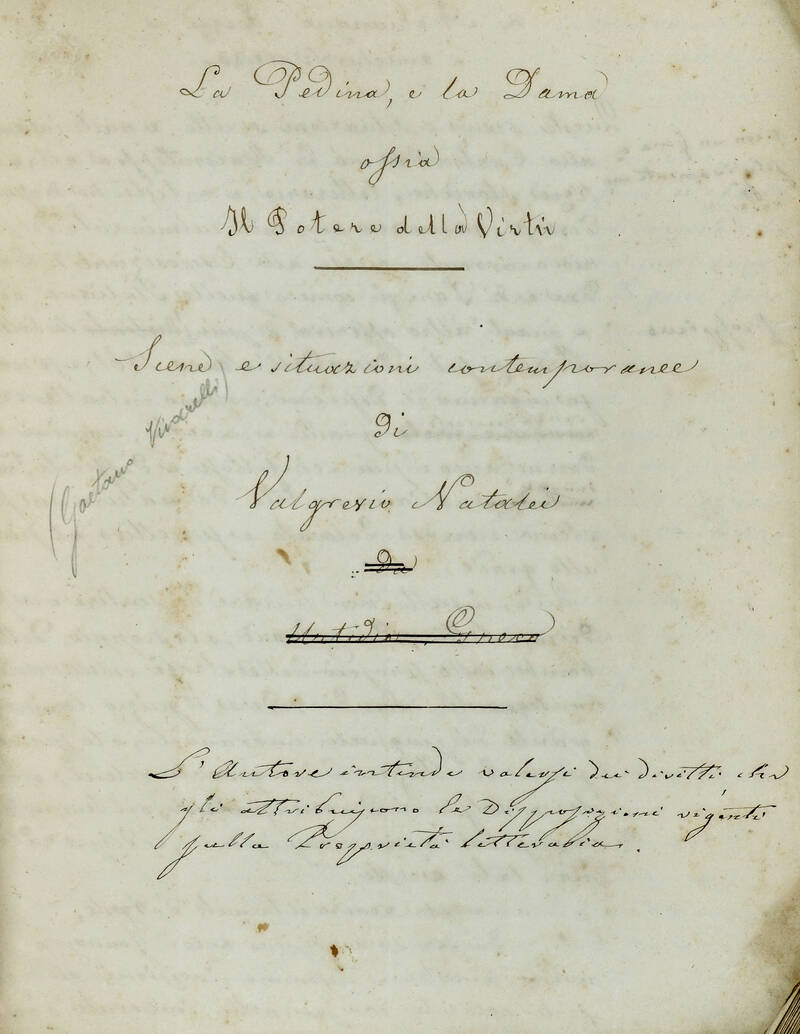 La Pedina, e la Dama
ossia
Il Potere della Virtù
Scene e situazioni contemporanee
(Gaetano Vivarelli)
Di
Valgrexio Natalei
Da
L'Autore intende valersi dei diritti che
gli attribuiscono le Disposizioni vigenti
sulla Proprietà letteraria.